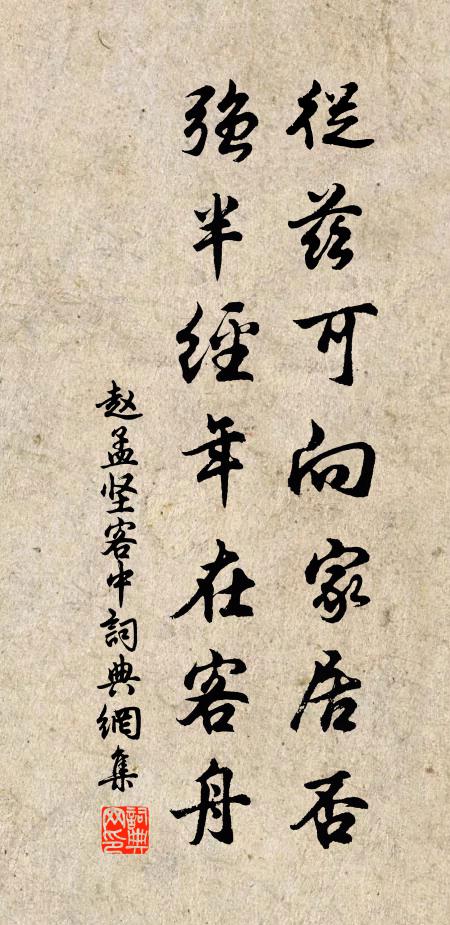 從茲可向家居否
強半經年在客舟
赵孟坚客中詞典網集
詞典网印